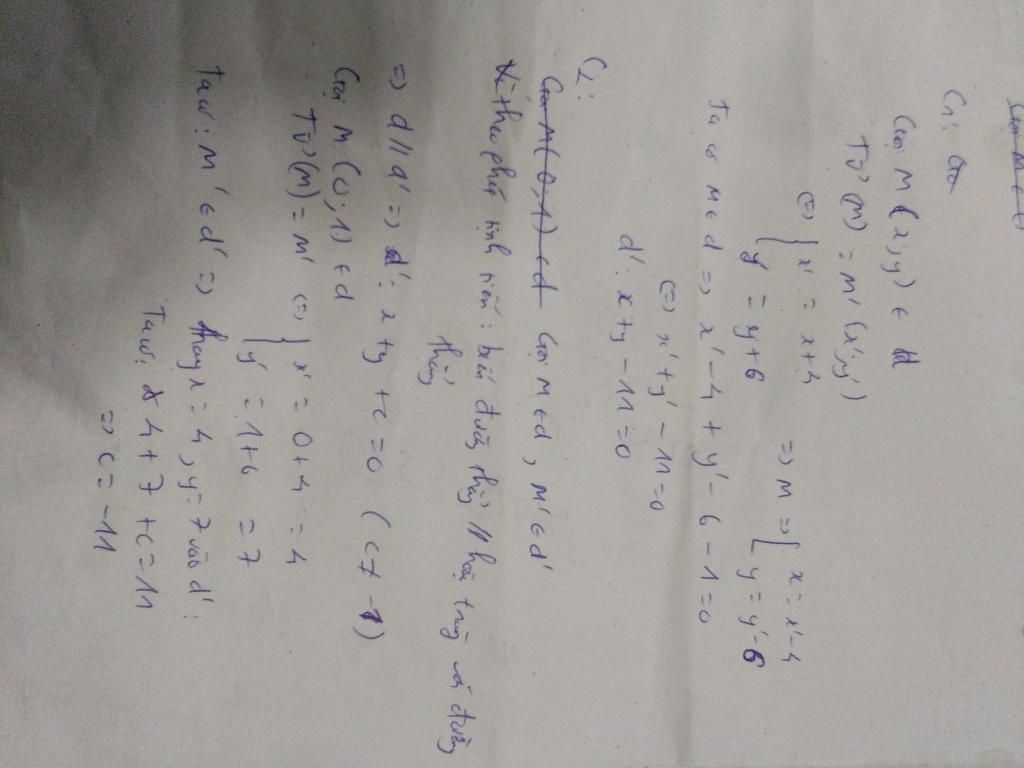 C1:
Gọi M (x; y) ∈ d
Tv⃗ (M) = M' (x'; y')
(=) { x' = x+4
y' = y+6
=) M =) { x = x' - 4
y = y' - 6
Ta có M ∈ d =) x' - 4 + y' - 6 - 1 = 0
(=) x' + y' - 11 = 0
d': x + y - 11 = 0
C2:
Gọi M(0, 1) ∈ d Gọi M ∈ d, M' ∈ d'
Vì theo phép tịnh tiến: biến đường thẳng // hoặc trùng với đường
thẳng
=) d // d' =) d': x + y + c = 0 ( c ≠ -1)
Gọi M (0; 1) ∈ d
Tv⃗ (M) = M' (=) { x' = 0+4 = 4
y' = 1+6 = 7
Ta có: M' ∈ d' =) thay x = 4, y = 7 vào d':
Ta có: 4 + 7 + c = 11
=) c = -11